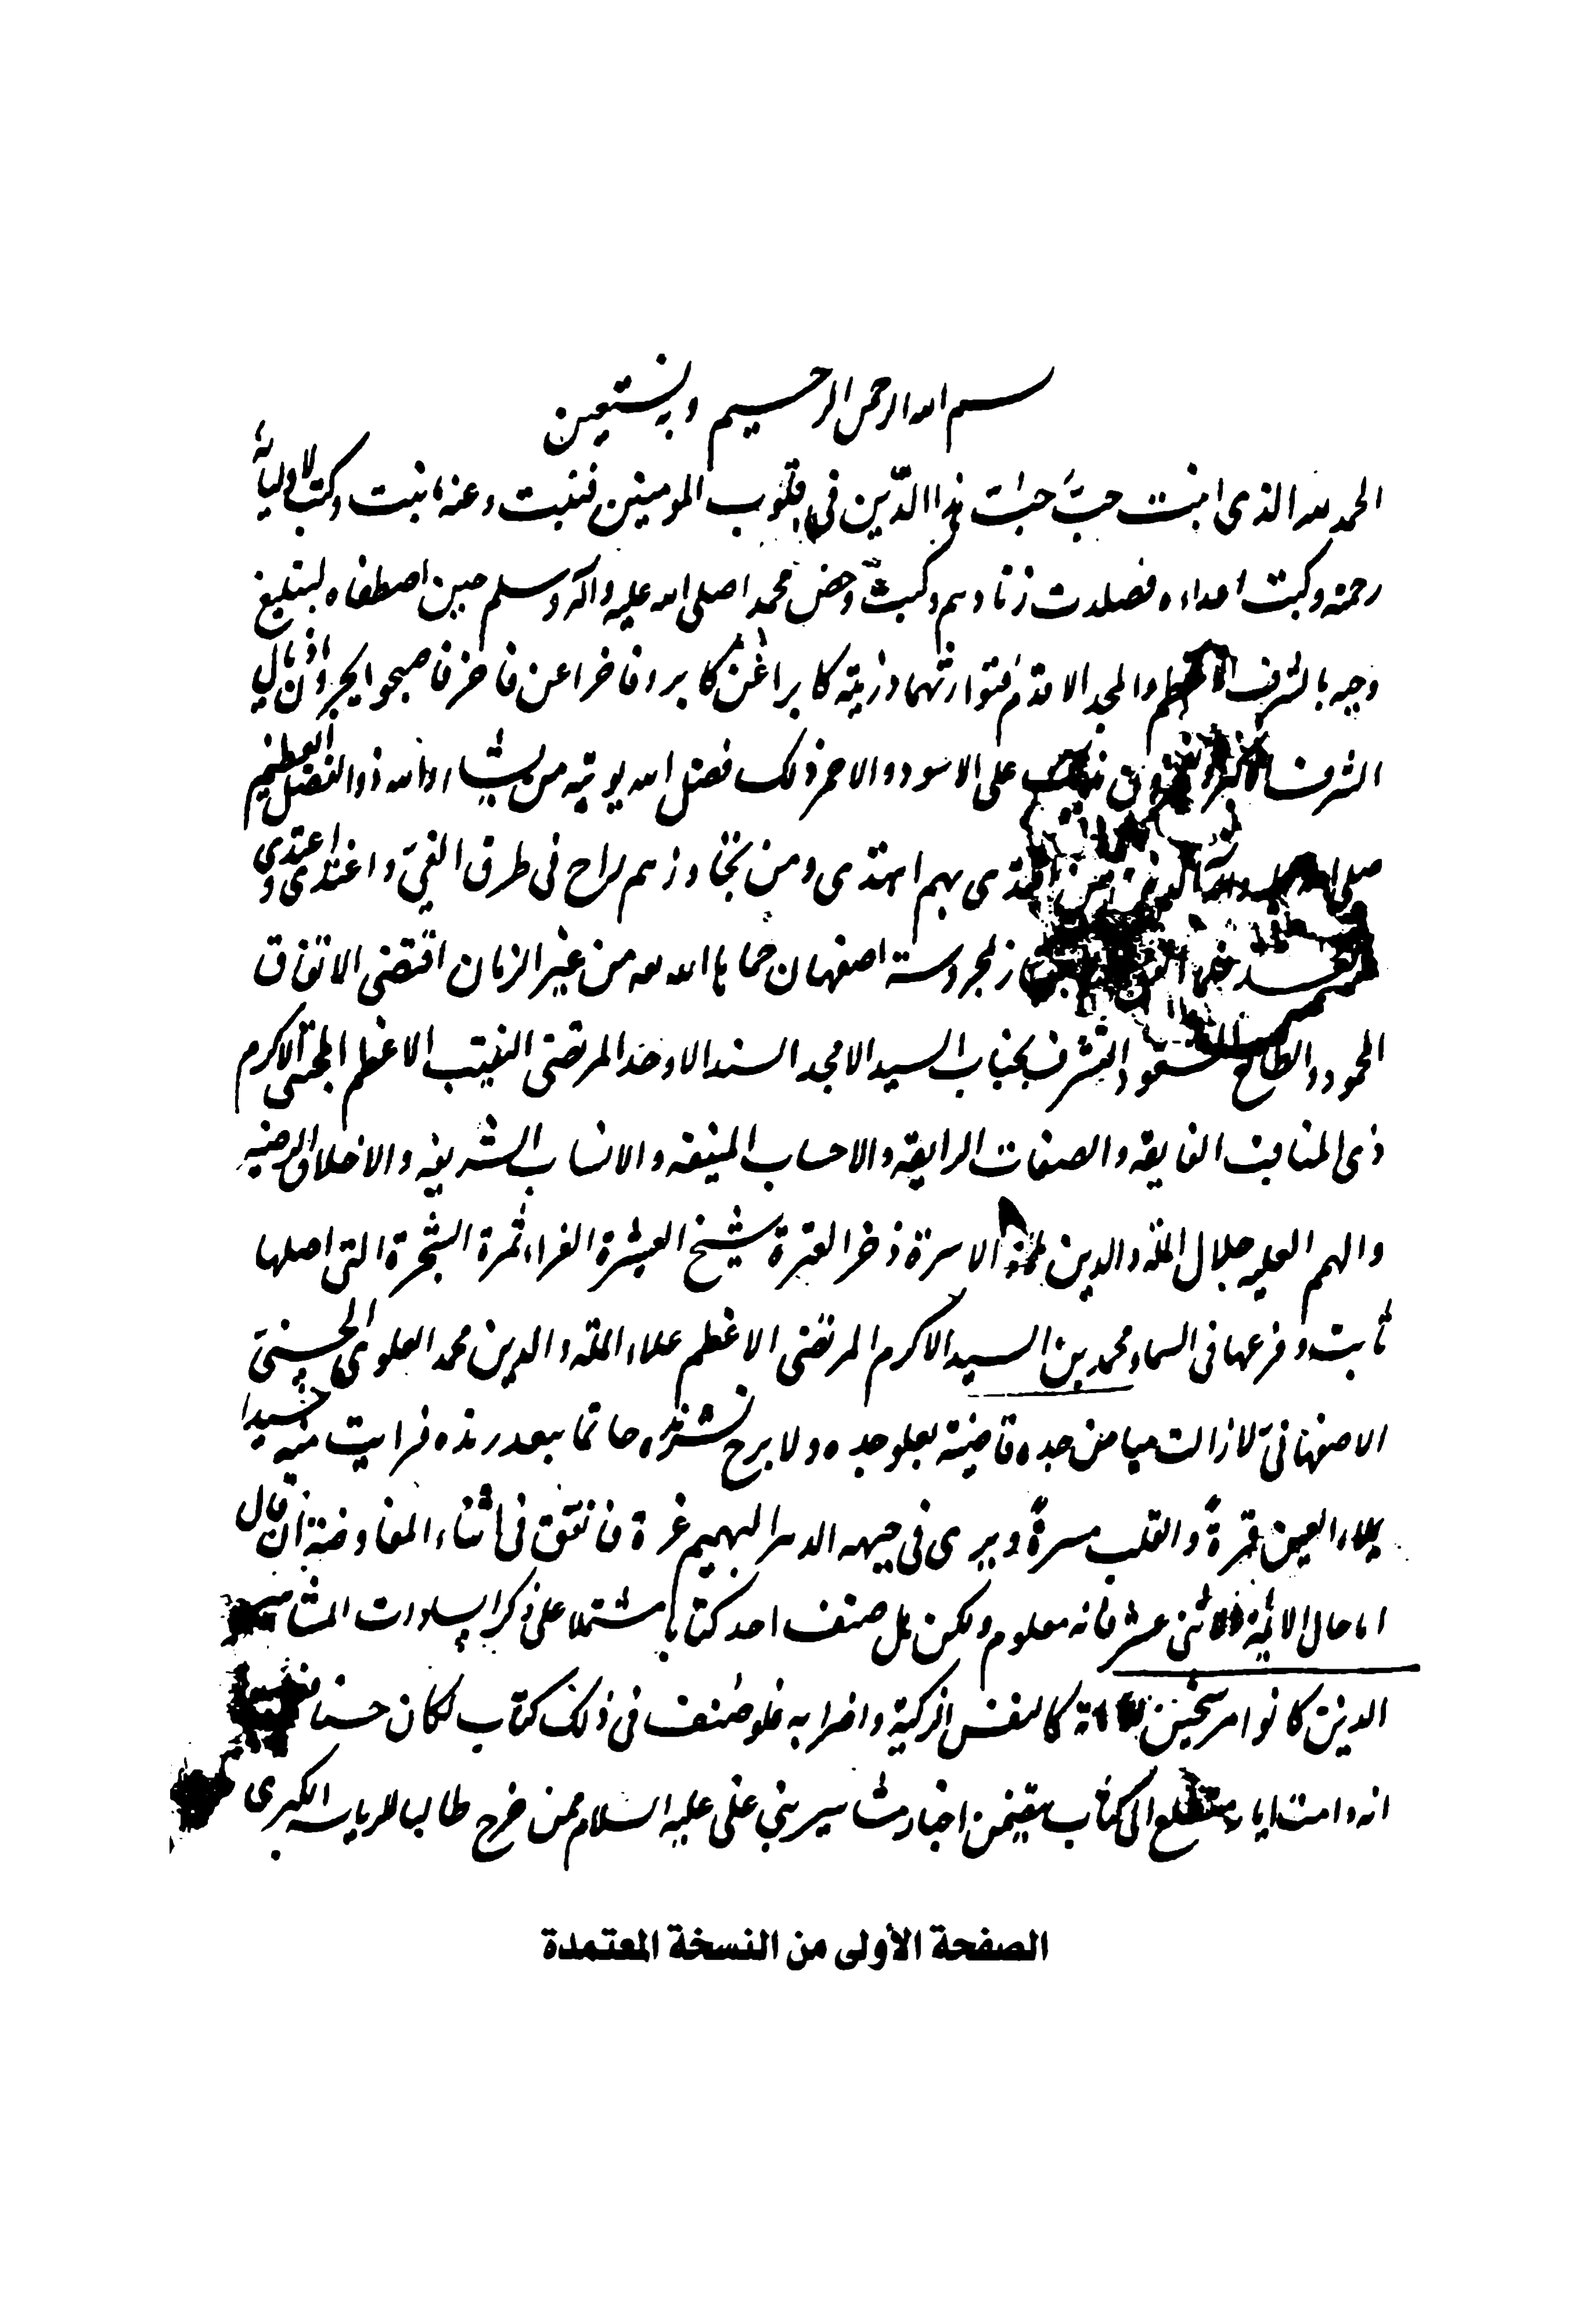 بسم الله الرحمن الرحيم وبه نستعين
الحمد لله الذى انبت حبَّ حبّ هذا الدّين فى قلوب المومنين فنبت وعنه انبت وكتب لاوليائه
رحمة وكبت اعداءه فصلدت زنادهم وكبت وخص محمدا صلى الله عليه واله وسلم حين اصطفاه لتبليغ
وحيه بالشرف والمجد الاقدم فتوارثهما ذريته كابرا عن كابر وفاخرا عن فاخر فاصبحوا يجرون اذيال
الشرف على الاسود والاحمر ذلك فضل الله يوتيه من يشاء والله ذو الفضل العظيم
صلى الله بهم اهتدى ومن تجاوزهم راح فى طرق الغىّ واغتدى و اعتدى
اصفهان حماها الله من غير الزمان اقتضى الاتفاق
المحمود والطالع المسعود التشرف بجناب السيد الامجد السند الاوحد المرتضى النقيب الاعظم المجتبى الاكرم
ذى المناقب الفايقه والصفات الرايقه والاحساب المنيفه والانساب الشريفه والاخلاق الرضيه
والهمم العليه جلال الملّه والدين الاسرة ذخر العترة شيخ العشيرة الغراء ثمرة الشجرة التى اصلها
ثابت وفرعها فى السماء محمد بن السيد الاكرم المرتضى الاعظم علاء الملّه والدين محمد العلوى الحسينىّ
الاصفهانىّ لازالت ميامن جده قاضية بعلو جده ولا برح حاتما بعد رفده فرايت منه سيدا
يملاء العين قرةً والقلب مسرةً ويرى فى جبهه الدهر البهيم غرة فاتفق فى اثناء المفاوضة أن قال
اما حال الائمة الاثنى عشر فانه معلوم ولكن هل صنف احد كتابا مشتملا على ذكر السادات
الذين كانوا مرشحين كالنفس الزكية واضرابه فلو صنف فى ذلك كتاب لكان حسنا
انه دامت ايامه الى كتاب يتضمن اخبار مشاهير بنى على عليه السلام ممن خرج طالبا للرياسه الكبرى
الصفحة الأولى من النسخة المعتمدة